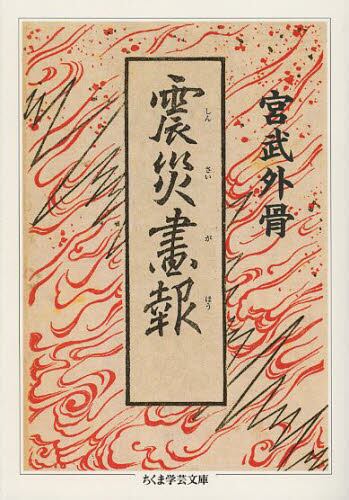 宮武外骨
震災畫報
しん さい が ほう
ちくま学芸文庫